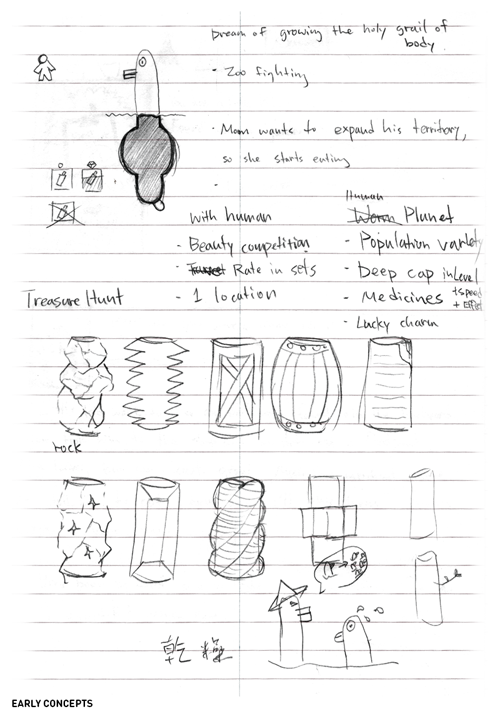 Dream of growing the holy grail of
body
· Zoo fighting
· Mom wants to expand his territory,
so she starts eating
·
with human
· Beauty competition
· Rate in sets
· 1 location
Human
Worm Planet
- Population variety
- Deep cap in Level
- Medicines +speed
+ Effect
- Lucky charm
Treasure Hunt
rock
乾 燥
EARLY CONCEPTS